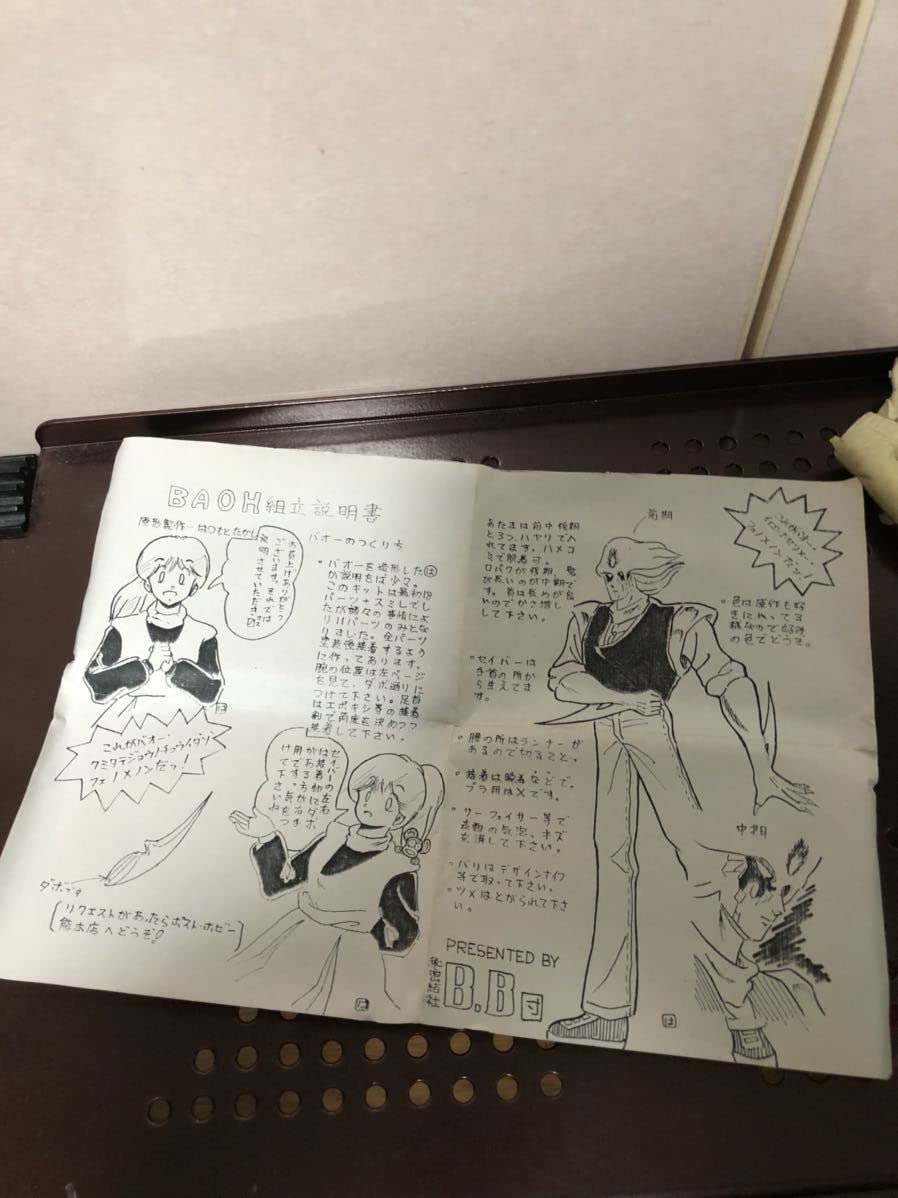 BAOH組立説明書
原形製作…はOもとたかし
お買上げありがとう
ございます。それでは
説明させていただきます
バオーのつくり方
・バオーを造形した は
が説明をば少々。
このキットは最初18
パーツ+スミしでし
たが諸々の事情によ
り11パーツのみとな
りました。全パーツ
塗装後接着するよう
に作ってあります。
腕の位置は左ページ
を見て、ダボ通りに
つけて下さい。足首
はエポキシ等の接着
剤で角度を決めつつ
接着して下さい。
これがバオー・
クミタテジョウノチュウイダゾ・
フェノメノンだッ!
セイバーの左右
は接着部にダボ
がある方が右
用です。気をつ
けて下さいね
ダボです
リクエストがあったらポスト・ホビー
熊本店へどうぞ!
は
は
あたまは前中後期
と3つ、ハヤリで入
れてます。ハメコミ
で脱着可。
口パクが後期、髪
が長いのが中期で
す。首は長めが良
いのでかさ増し
して下さい。
・セイバーは
手首の所か
ら生えてま
す。
・腰の所はランナーが
あるので切ること。
・接着は瞬着などで。
プラ用は×です。
・サーフェイサー等で
表面の気泡、キズ
を消して下さい。
・バリはデザインナイフ
等で取って下さい。
・ツメはとがらせて下さ
い。
PRESENTED BY
秘密結社
B.B団
前期
これがバオー・
フェノメノンだッ!
・色は原作も好
きにやってる
様なので好み
の色でどうぞ。
中期
は